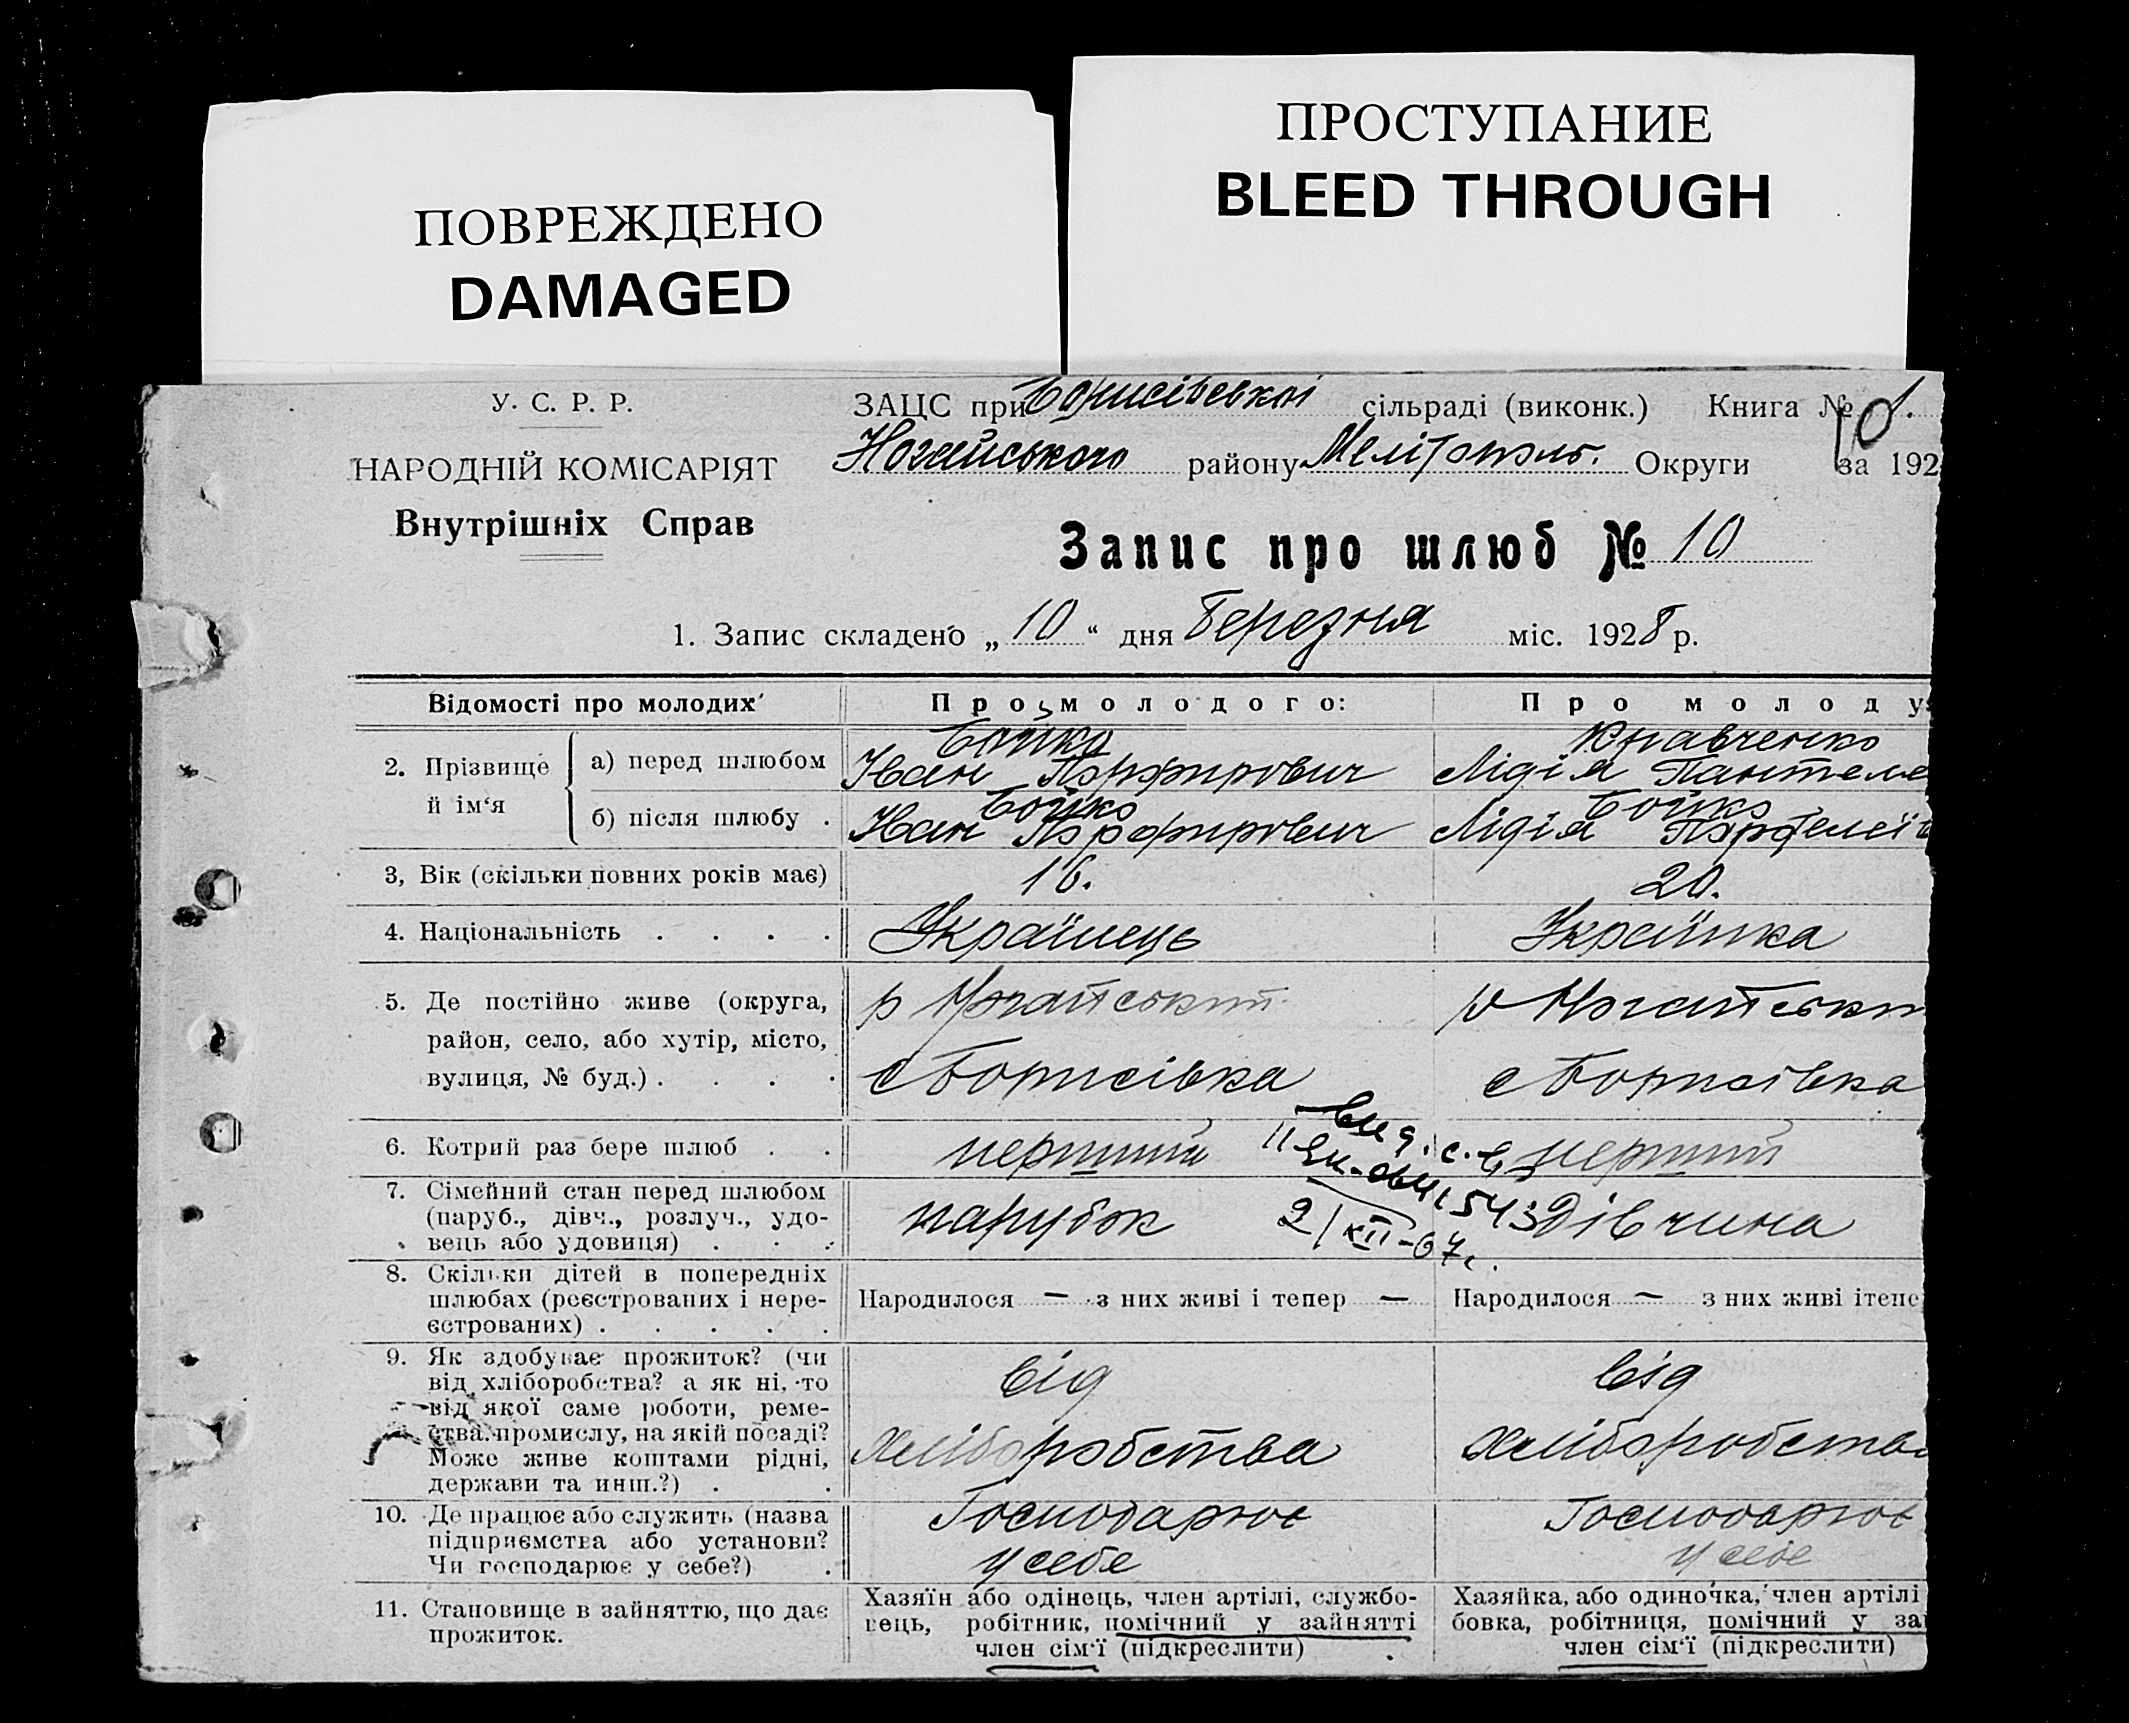 ПОВРЕЖДЕНО
DAMAGED
ПРОСТУПАНИЕ
BLEED THROUGH
У. С. Р. Р.
НАРОДНІЙ КОМІСАРІЯТ
Внутрішніх Справ
ЗАЦС при Борисівській сільраді (виконк.) Книга № 1.
Ногайського району Мелітополь. Округи за 192
Запис про шлюб № 10
1. Запис складено „ 10 “ дня Березня міс. 1928 р.
Відомості про молодих
Про молодого:
Про молоду:
2. Прізвище й ім‘я
а) перед шлюбом
Бойко
Іван Порфирович
Кравченко
Лідія Пантеле
б) після шлюбу .
Бойко
Іван Порфирович
Бойко
Лідія
3, Вік (скільки повних років має)
16.
20.
4. Національність . . . .
Українець
Українка
5. Де постійно живе (округа,
район, село, або хутір, місто,
вулиця, № буд.) . . . .
р Ногайський
с Борисівка
р Ногайськи
с Борисівка
6. Котрий раз бере шлюб . .
перший
перший
7. Сімейний стан перед шлюбом
(паруб., дівч., розлуч., удо-
вець або удовиця) . . .
парубок
Дівчина
2/XII-67г.
8. Скільки дітей в попередніх
шлюбах (реєстрованих і нере-
єстрованих) . . . . .
Народилося — з них живі і тепер —
Народилося — з них живі і тепе
9. Як здобуває прожиток? (чи
від хліборобства? а як ні, то
від якої саме роботи, реме-
ства, промислу, на якій посаді?
Може живе коштами рідні,
держави та инш.?) . .
від
хліборобства
від
хліборобства
10. Де працює або служить (назва
підприємства або установи?
Чи господарює у себе?) .
Господарює
у себе
Господарює
у себе
11. Становище в зайняттю, що дає
прожиток.
Хазяїн або одінець, член артілі, службо-
вець, робітник, помічний у зайнятті
член сім‘ї (підкреслити)
Хазяйка, або одиночка, член артілі
бовка, робітниця, помічний у за
член сім‘ї (підкреслити)